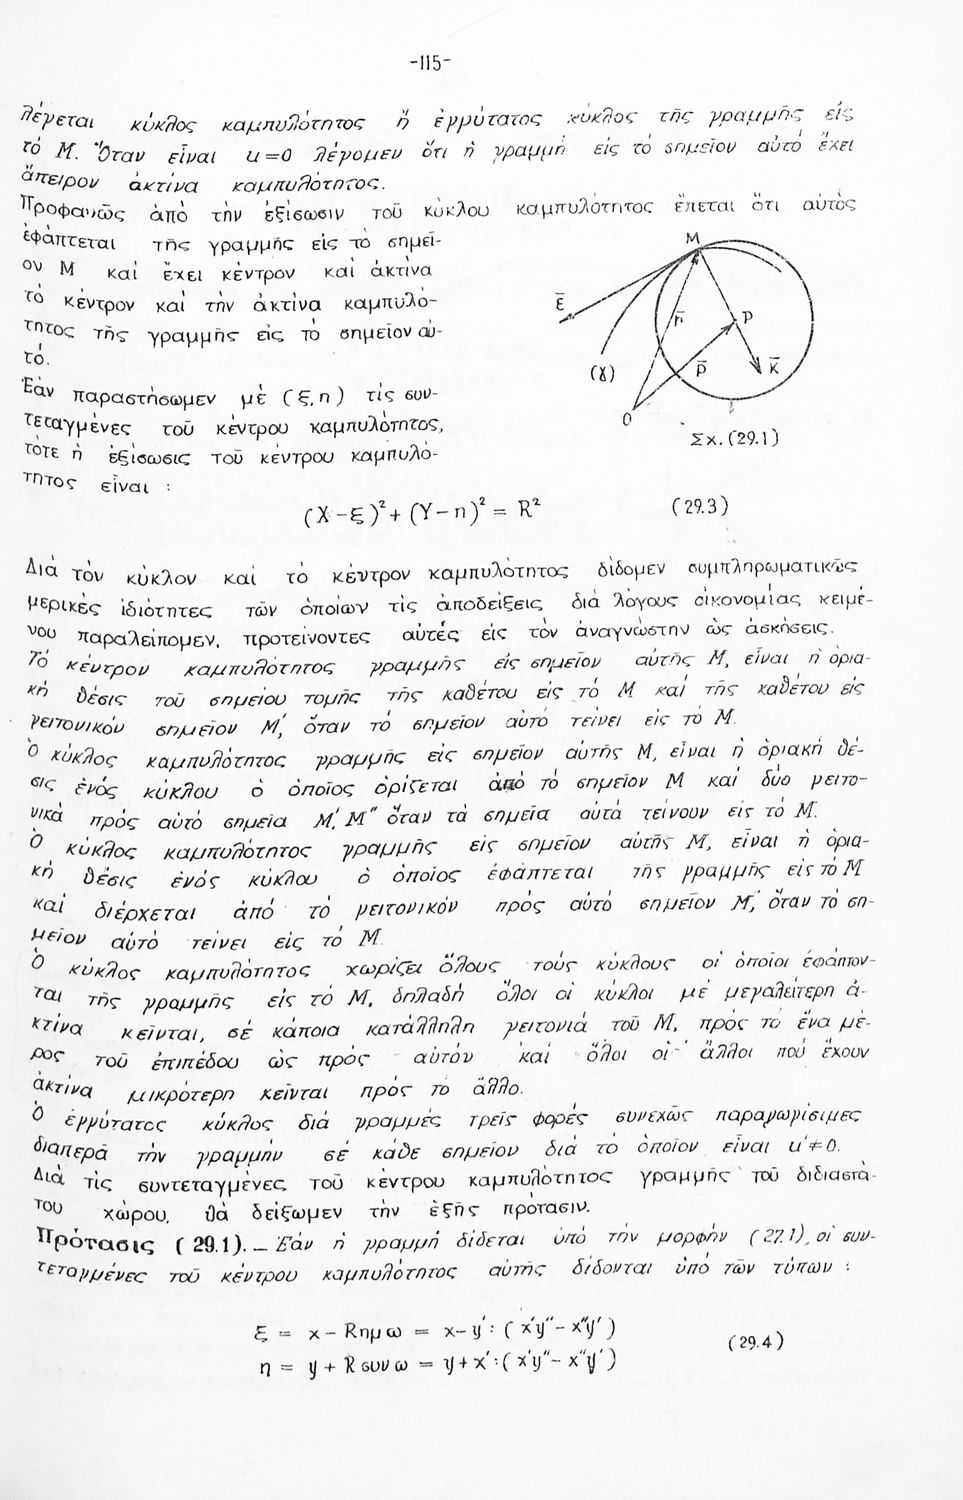 -115-
λέγεται κύκλος καμπυλότητος ἤ ἐγγύτατος κύκλος τῆς γραμμῆς εἰς
τό Μ. Ὅταν εἶναι u=0 λέγομεν ὅτι ἡ γραμμή εἰς τό σημεῖον αὐτό ἔχει
ἄπειρον ἀκτίνα καμπυλότητος.
Προφανῶς ἀπό τήν ἐξίσωσιν τοῦ κύκλου καμπυλότητος ἕπεται ὅτι αὐτός
ἐφάπτεται τῆς γραμμῆς εἰς τό σημεῖ-
ον Μ καί ἔχει κέντρον καί ἀκτίνα
τό κέντρον καί τήν ἀκτίνα καμπυλό-
τητος τῆς γραμμῆς εἰς τό σημεῖον αὐ-
τό.
Ἐάν παραστήσωμεν μέ (ξ,η) τίς συν-
τεταγμένες τοῦ κέντρου καμπυλότητος,
τότε ἡ ἐξίσωσις τοῦ κέντρου καμπυλό-
τητος εἶναι :
M
ε̄
r̄
P
(γ)
ρ̄
κ̄
O
Σχ. (29.1)
(X-ξ)²+(Y-η)² = R² (29.3)
Διά τόν κύκλον καί τό κέντρον καμπυλότητος δίδομεν συμπληρωματικῶς
μερικές ἰδιότητες τῶν ὁποίων τίς ἀποδείξεις διά λόγους οἰκονομίας κειμέ-
νου παραλείπομεν, προτείνοντες αὐτές εἰς τόν ἀναγνώστην ὡς ἀσκήσεις.
Τό κέντρον καμπυλότητος γραμμῆς εἰς σημεῖον αὐτῆς Μ, εἶναι ἡ ὁρια-
κή θέσις τοῦ σημείου τομῆς τῆς καθέτου εἰς τό Μ καί τῆς καθέτου εἰς
γειτονικόν σημεῖον Μ', ὅταν τό σημεῖον αὐτό τείνει εἰς τό Μ.
Ὁ κύκλος καμπυλότητος γραμμῆς εἰς σημεῖον αὐτῆς Μ, εἶναι ἡ ὁριακή θέ-
σις ἑνός κύκλου ὁ ὁποῖος ὁρίζεται ἀπό τό σημεῖον Μ καί δύο γειτο-
νικά πρός αὐτό σημεῖα Μ', Μ" ὅταν τά σημεῖα αὐτά τείνουν εἰς τό Μ.
Ὁ κύκλος καμπυλότητος γραμμῆς εἰς σημεῖον αὐτῆς Μ, εἶναι ἡ ὁρια-
κή θέσις ἑνός κύκλου ὁ ὁποῖος ἐφάπτεται τῆς γραμμῆς εἰς τό Μ
καί διέρχεται ἀπό τό γειτονικόν πρός αὐτό σημεῖον Μ', ὅταν τό ση-
μεῖον αὐτό τείνει εἰς τό Μ.
Ὁ κύκλος καμπυλότητος χωρίζει ὅλους τούς κύκλους οἱ ὁποῖοι ἐφάπτον-
ται τῆς γραμμῆς εἰς τό Μ, δηλαδή ὅλοι οἱ κύκλοι μέ μεγαλείτερη ἀ-
κτίνα κεῖνται, σέ κάποια κατάλληλη γειτονιά τοῦ Μ, πρός τό ἕνα μέ-
ρος τοῦ ἐπιπέδου ὡς πρός αὐτόν καί ὅλοι οἱ ἄλλοι πού ἔχουν
ἀκτίνα μικρότερη κεῖνται πρός τό ἄλλο.
Ὁ ἐγγύτατος κύκλος διά γραμμές τρεῖς φορές συνεχῶς παραγωγίσιμες
διαπερᾶ τήν γραμμήν σέ κάθε σημεῖον διά τό ὁποῖον εἶναι u'≠0.
Διά τίς συντεταγμένες τοῦ κέντρου καμπυλότητος γραμμῆς τοῦ διδιαστά-
του χώρου, θά δείξωμεν τήν ἑξῆς πρότασιν.
Πρότασις (29.1).— Ἐάν ἡ γραμμή δίδεται ὑπό τήν μορφήν (27.1), οἱ συν-
τεταγμένες τοῦ κέντρου καμπυλότητος αὐτῆς δίδονται ὑπό τῶν τύπων :
ξ = x - Rημω = x-y' : (x'y"-x"y')
η = y + Rσυνω = y+x' : (x'y"-x"y') (29.4)